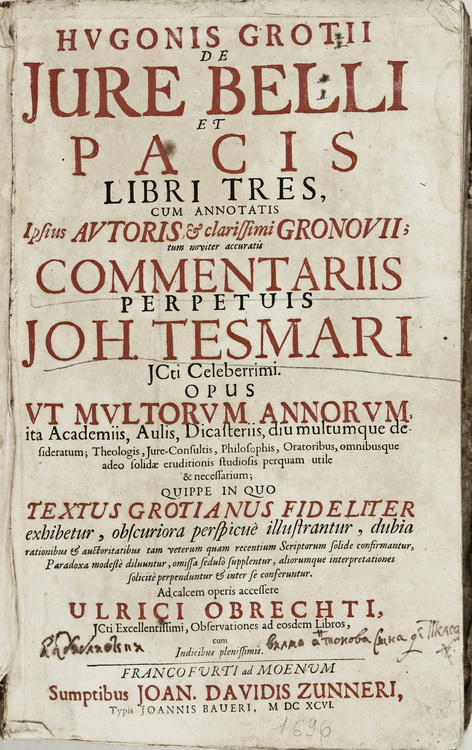 HVGONIS GROTII
DE
JURE BELLI
ET
PACIS
LIBRI TRES,
CUM ANNOTATIS
Ipsius AVTORIS & clarissimi GRONOVII;
tum noviter accuratis
COMMENTARIIS
PERPETUIS
JOH. TESMARI
JCti Celeberrimi.
OPUS
VT MVLTORVM ANNORVM,
ita Academiis, Aulis, Dicasteriis, diu multumque de-
sideratum; Theologis, Jure-Consultis, Philosophis, Oratoribus, omnibusque
adeo solidæ eruditionis studiosis perquam utile
& necessarium;
QUIPPE IN QUO
TEXTUS GROTIANUS FIDELITER
exhibetur, obscuriora perspicuè illustrantur, dubia
rationibus & auctoritatibus tam veterum quam recentium Scriptorum solide confirmantur,
Paradoxa modestè diluuntur, omissa sedulò supplentur, aliorumque interpretationes
solicitè perpenduntur & inter se conferuntur.
Ad calcem operis accessere
ULRICI OBRECHTI,
JCti Excellentissimi, Observationes ad eosdem Libros,
cum
Indicibus plenissimis.
FRANCOFURTI ad MOENUM
Sumptibus JOAN. DAVIDIS ZUNNERI,
Typis JOANNIS BAUERI, M DC XCVI.
1696